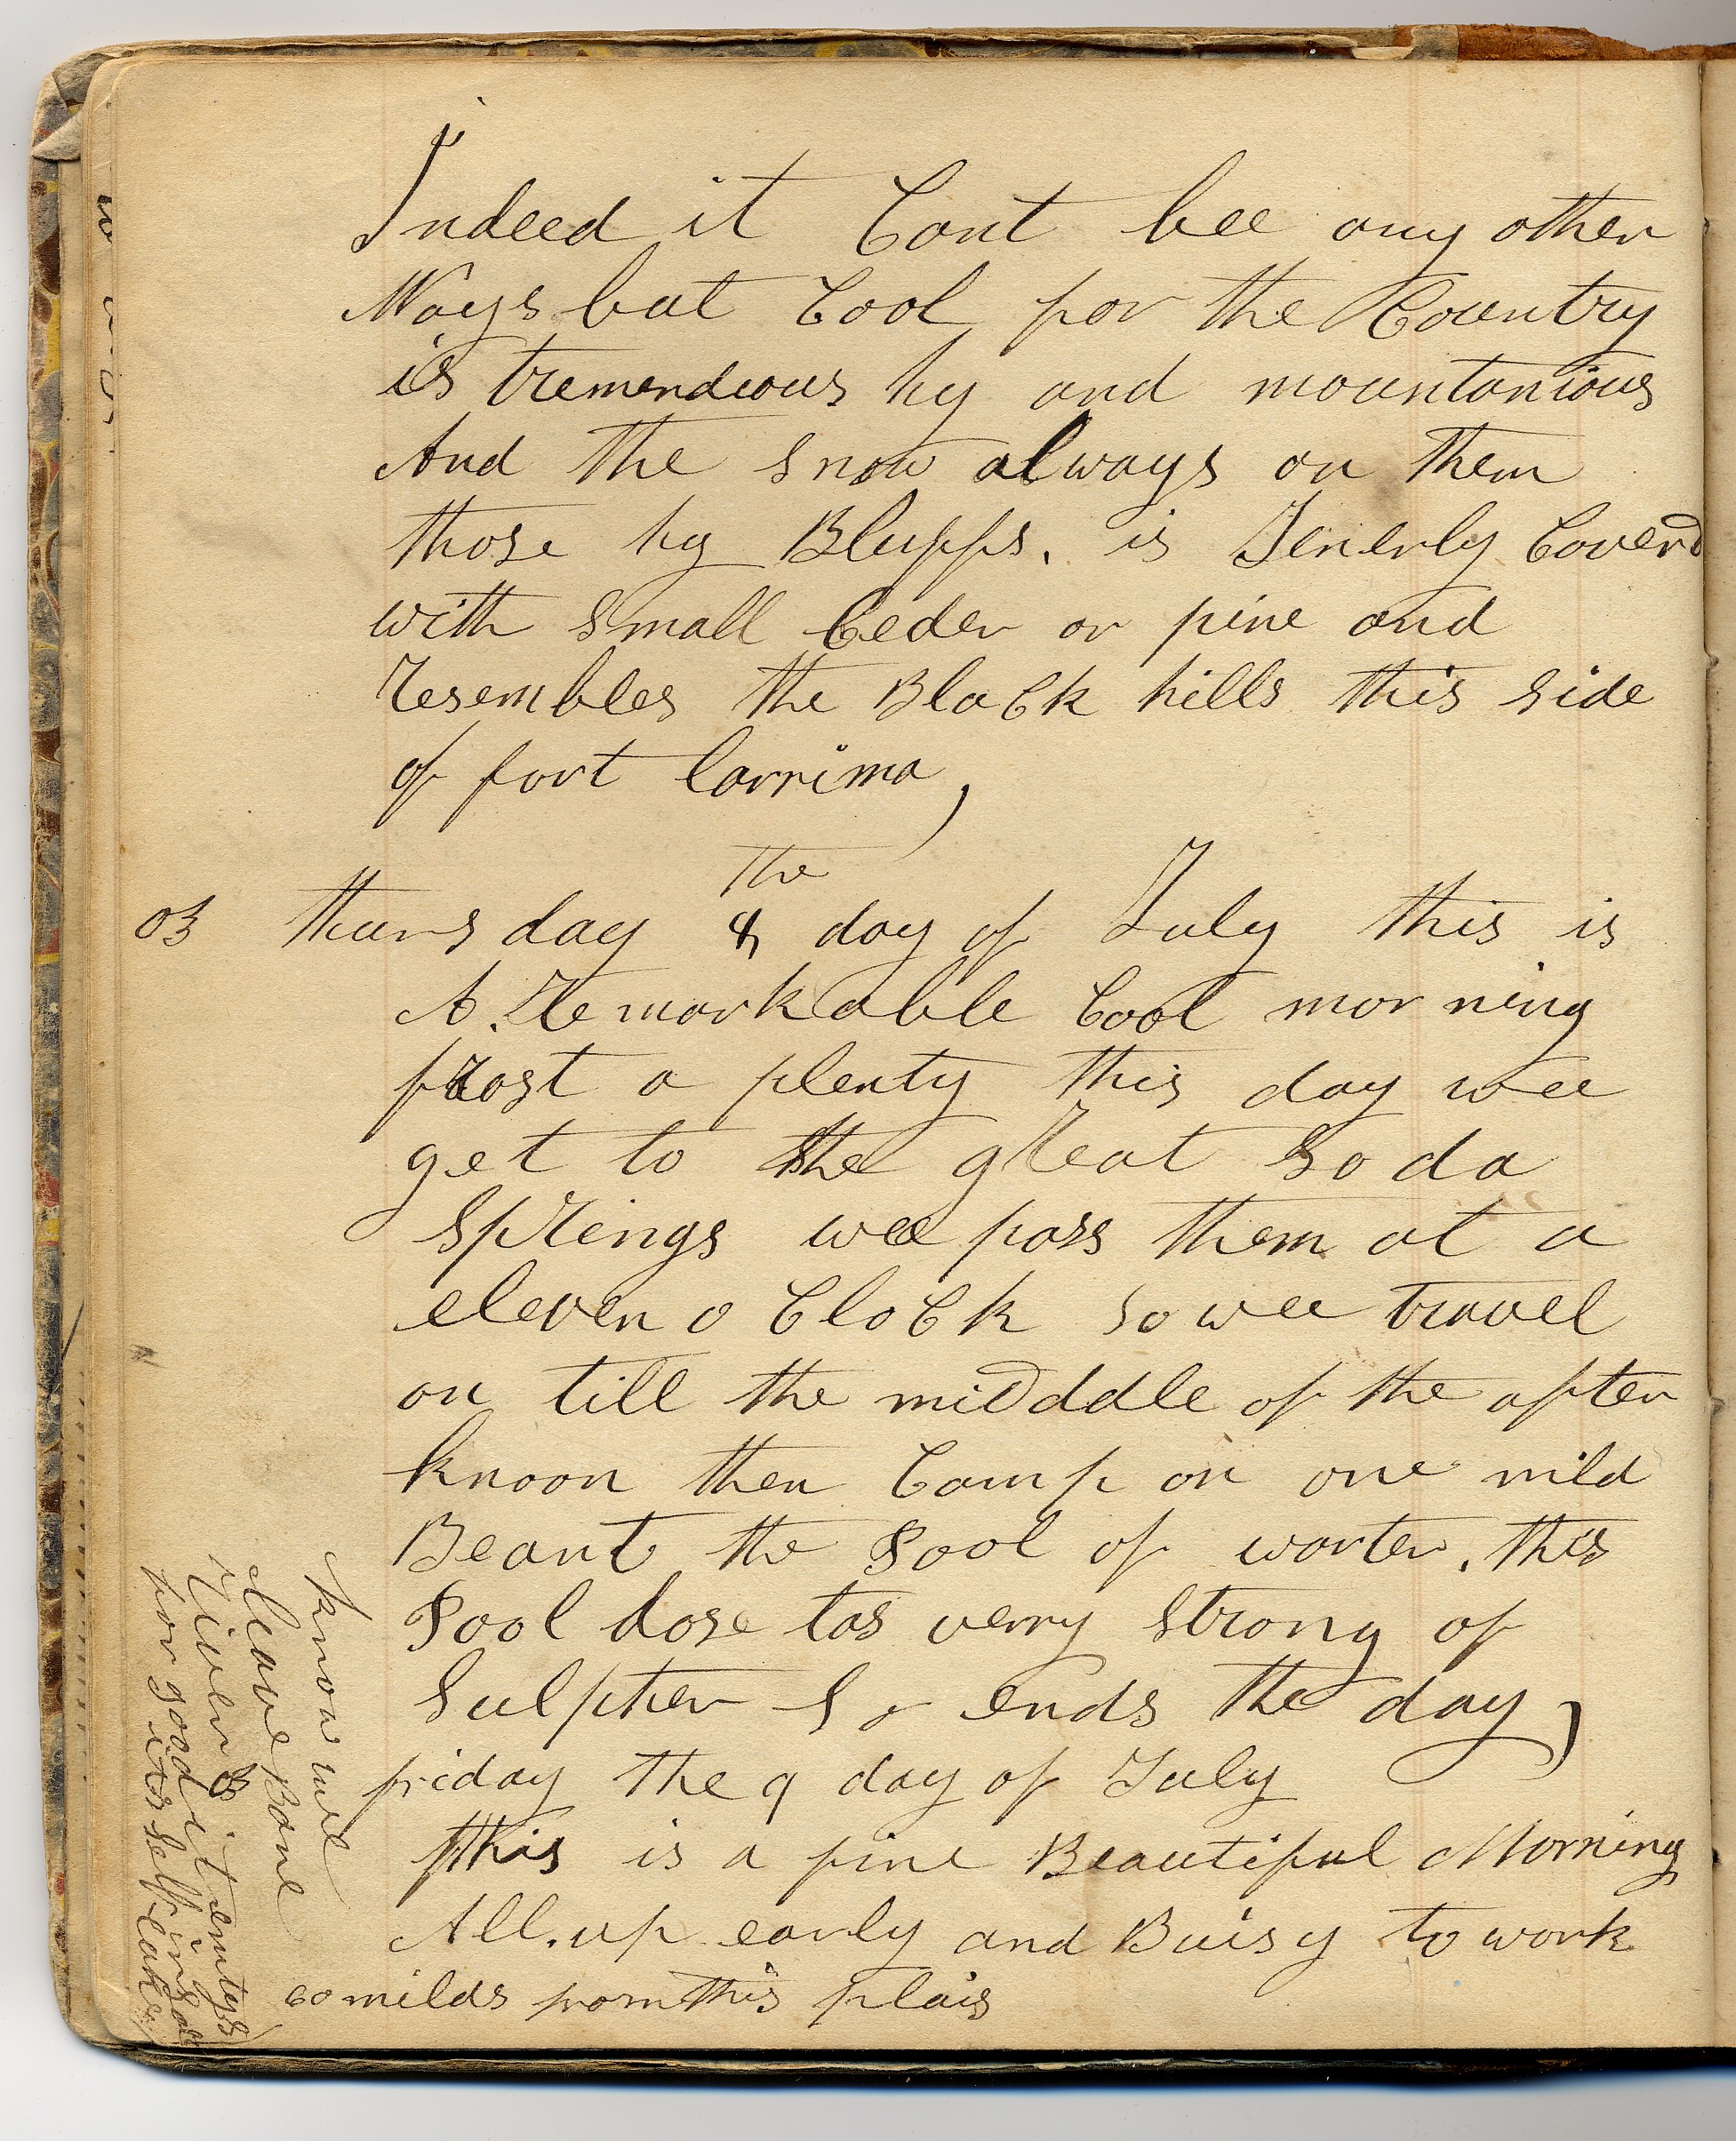 Indeed it Cant bee any other
Ways but Cool for the Country
is tremendious hy and mountanious
And the snow always on them
those hy Bluffs. is Jenerly Coverd
with Small Ceder or pine and
resembles the BlaCk hills this side
of fort larrima,
the
03 thursday 8 day of July this is
A. Remarkable Cool morning
frost a plenty this day wee
get to the great Soda
Springs wee pass them at a
eleven o CloCk so wee travel
on till the midddle of the after
knoon then Camp on one mild
Beant the Pool of warter. this
Pool dose tas verry Strong of
Sulpher So ends the day,
friday the 9 day of July
this is a fine Beautiful Morning
All. up early and Buisy to work
60 milds from this plais
know wee
leave Bane
River
for good it emtys
its self in salt
lake